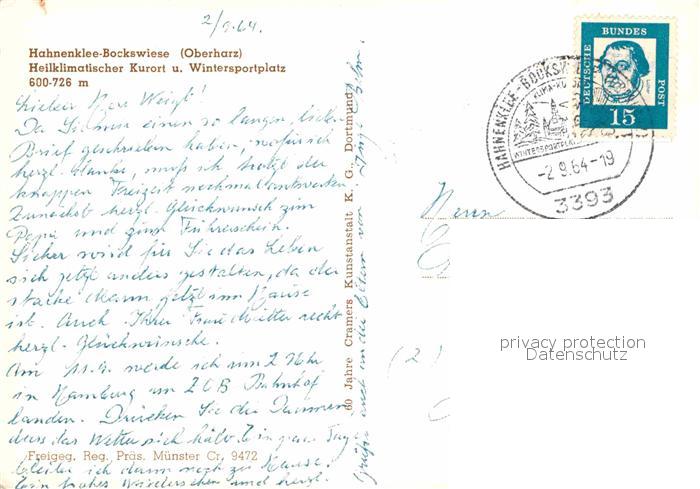 2/9.64.
Hahnenklee-Bockswiese (Oberharz)
Heilklimatischer Kurort u. Wintersportplatz
600-726 m
Lieber Herr Weigt!
Da Sie mir einen so langen, lieben
Brief geschrieben haben, wofür ich
herzl. danke, muß ich trotz der
knappen Freizeit nochmal antworten
Zunächst herzl. Glückwunsch zum
Papa und zum Führerschein.
Sicher wird für Sie das Leben
sich jetzt anders gestalten, da der
starke Mann jetzt im Hause
ist. Auch Ihrer Frau Mutter recht
herzl. Glückwünsche.
Am 11.9. werde ich um 2 Uhr
in Hamburg am ZOB Bahnhof
landen. Drücken Sie die Daumen
dass das Wetter sich hält.
Freigeg. Reg. Präs. Münster Cr. 9472
bleibe ich dann noch zu Hause.
Ein frohes Wiedersehen und herzl.
Grüße auch an die Eltern von
60 Jahre Cramers Kunstanstalt K. G., Dortmund
DEUTSCHE BUNDES POST
15
HAHNENKLEE-BOCKSW
WINTERSPORTPLATZ
-2.9.64-19
3393
Herrn
(2)
privacy protection
Datenschutz